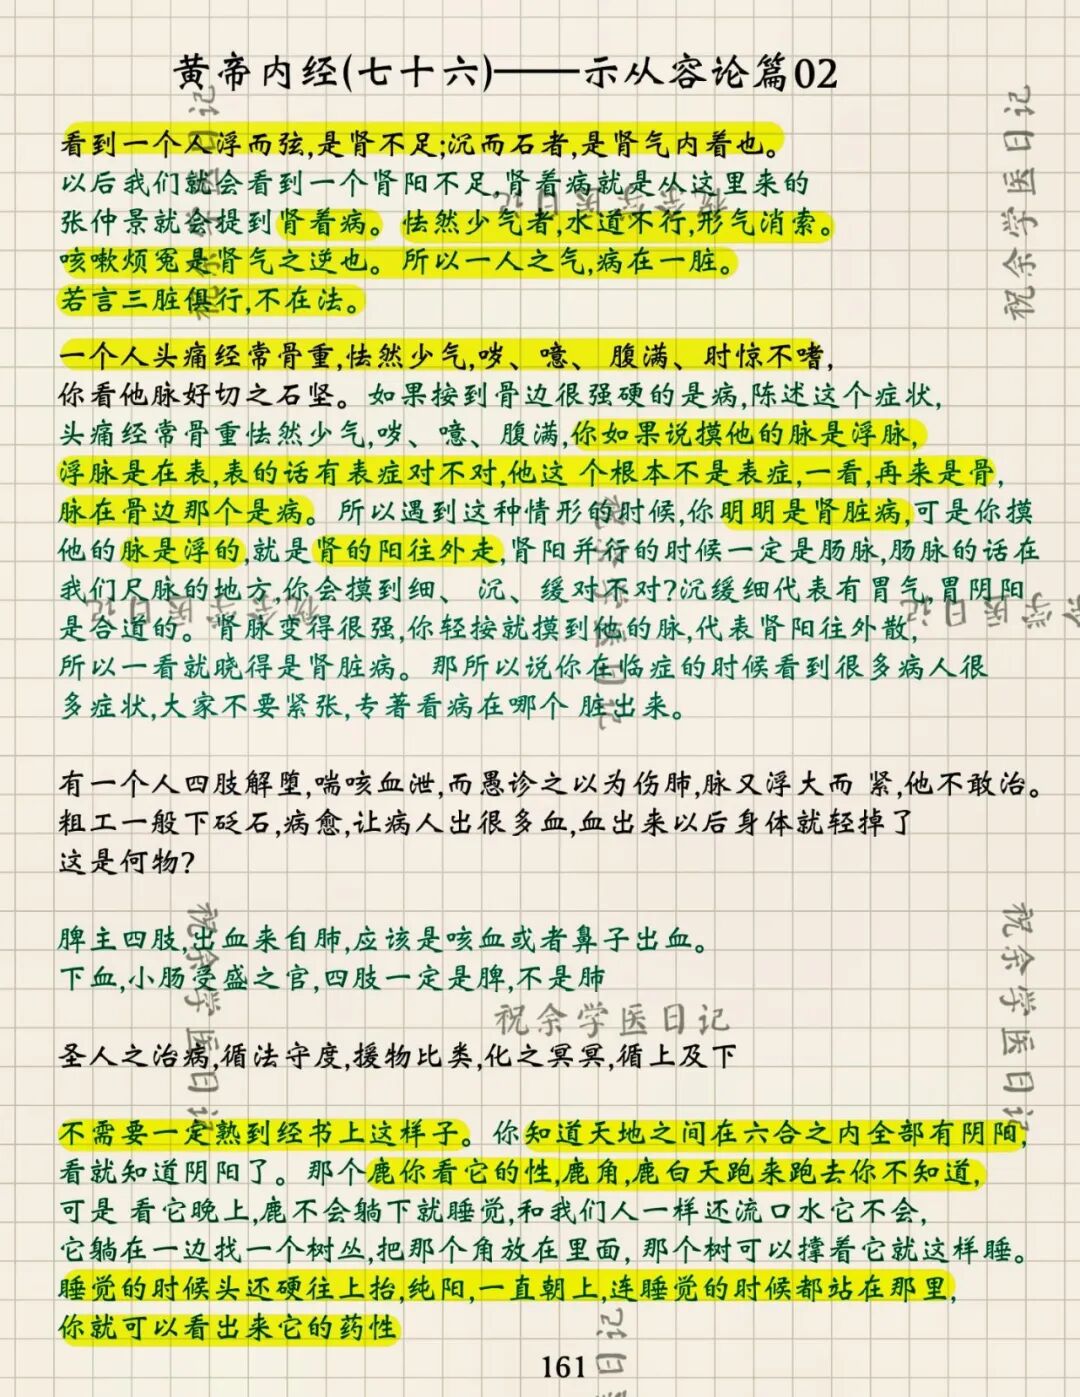 黄帝内经(七十六)——示从容论篇02
看到一个人浮而弦,是肾不足;沉而石者,是肾气内着也。
以后我们就会看到一个肾阳不足,肾着病就是从这里来的
张仲景就会提到肾着病。怯然少气者,水道不行,形气消索。
咳嗽烦冤是肾气之逆也。所以一人之气,病在一脏。
若言三脏俱行,不在法。
一个人头痛经常骨重,怯然少气,哕、噫、腹满、时惊不嗜,
你看他脉好切之石坚。如果按到骨边很强硬的是病,陈述这个症状,
头痛经常骨重怯然少气,哕、噫、腹满,你如果说摸他的脉是浮脉,
浮脉是在表,表的话有表症对不对,他这 个根本不是表症,一看,再来是骨,
脉在骨边那个是病。所以遇到这种情形的时候,你明明是肾脏病,可是你摸
他的脉是浮的,就是肾的阳往外走,肾阳并行的时候一定是肠脉,肠脉的话在
我们尺脉的地方,你会摸到细、沉、缓对不对?沉缓细代表有胃气,胃阴阳
是合道的。肾脉变得很强,你轻按就摸到他的脉,代表肾阳往外散,
所以一看就晓得是肾脏病。那所以说你在临症的时候看到很多病人很
多症状,大家不要紧张,专著看病在哪个 脏出来。
有一个人四肢解堕,喘咳血泄,而愚诊之以为伤肺,脉又浮大而 紧,他不敢治。
粗工一般下砭石,病愈,让病人出很多血,血出来以后身体就轻掉了
这是何物?
脾主四肢,出血来自肺,应该是咳血或者鼻子出血。
下血,小肠受盛之官,四肢一定是脾,不是肺
祝余学医日记
圣人之治病,循法守度,援物比类,化之冥冥,循上及下
不需要一定熟到经书上这样子。你知道天地之间在六合之内全部有阴阳,
看就知道阴阳了。那个鹿你看它的性,鹿角,鹿白天跑来跑去你不知道,
可是 看它晚上,鹿不会躺下就睡觉,和我们人一样还流口水它不会,
它躺在一边找一个树丛,把那个角放在里面,那个树可以撑着它就这样睡。
睡觉的时候头还硬往上抬,纯阳,一直朝上,连睡觉的时候都站在那里,
你就可以看出来它的药性
161